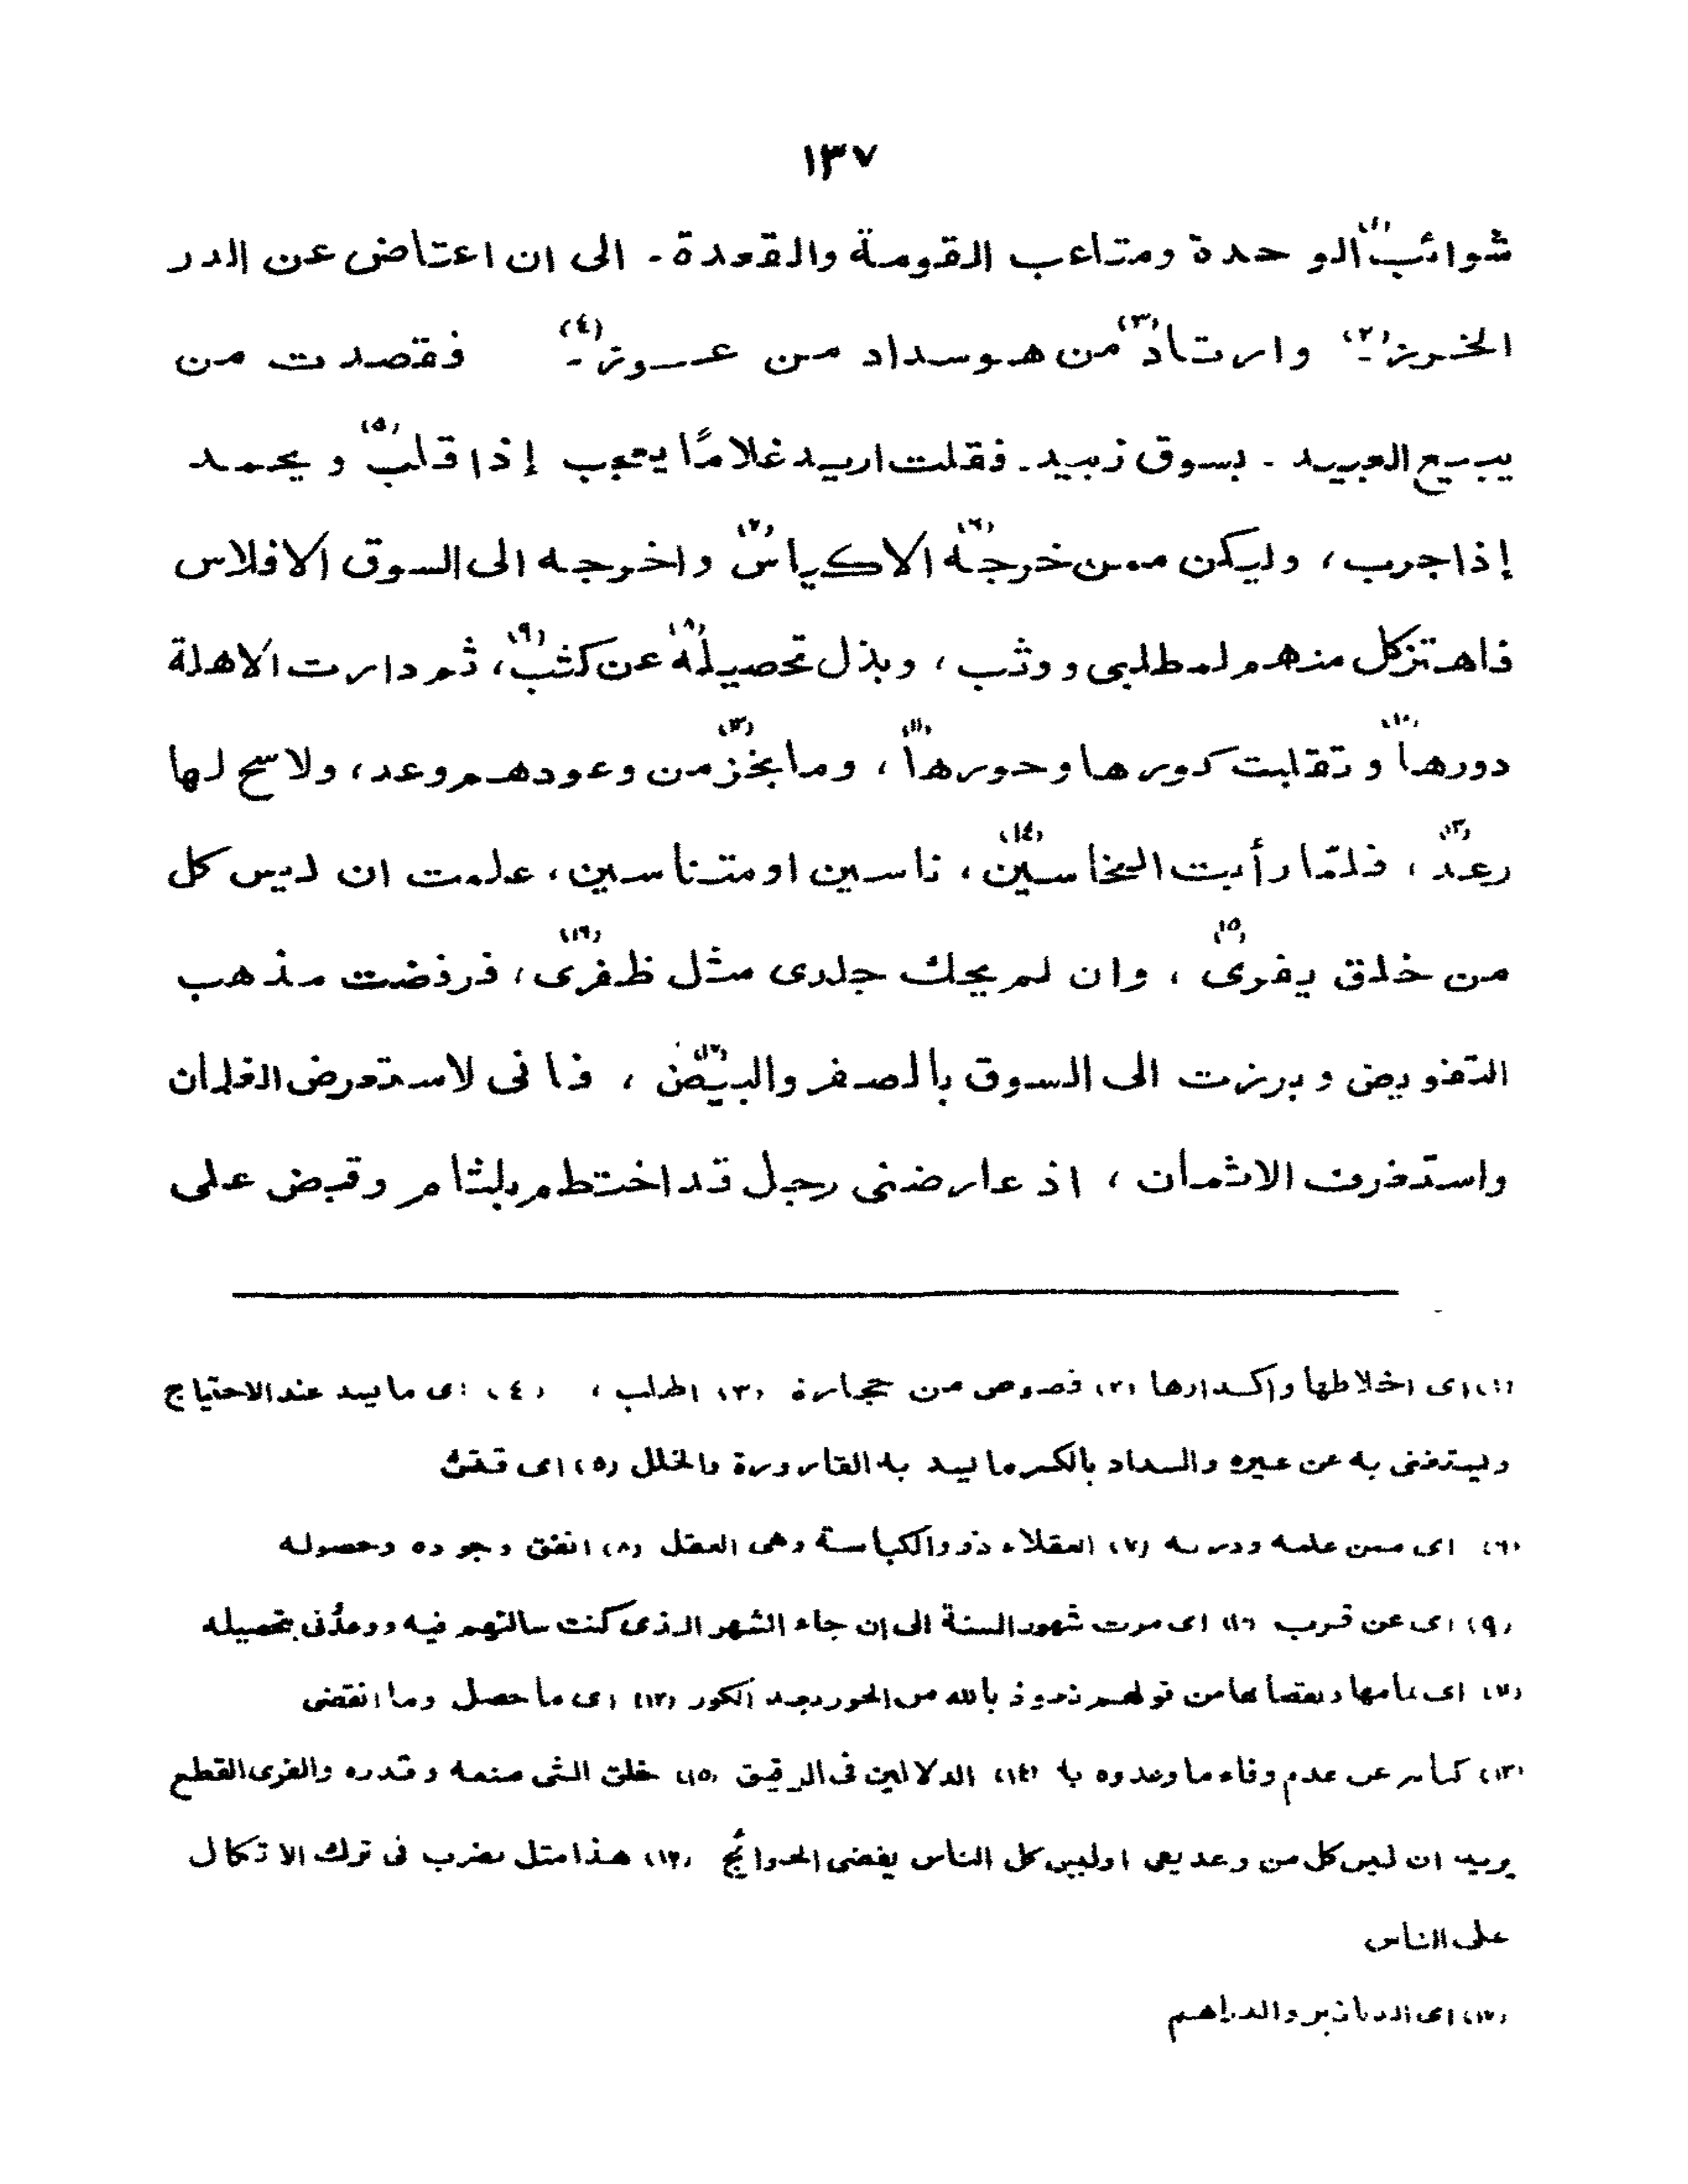 ١٣٧
شوائب(١) الوحدة ومتاعب القومة والقعدة - الى ان اعتاض عن الدر
الخرز(٢) - وارتاد(٣) من هو سداد من عوز(٤) - فقصدت من
يبيع العبيد - بسوق زبيد - فقلت اريد غلامًا يعجب إذا قلب(٥) و يحمد
إذا جرب ، وليكن ممن خرجه(٦) الاكياس(٧) واخرجه الى السوق الافلاس
فاهتز كل منهم لمطلبى ووثب ، وبذل تحصيله(٨) عن كثب(٩) ، ثم دارت الاهلة
دورها(١٠) و تقلبت كورها وحورها(١١) ، وما نجز(١٢) من وعودهم وعد ، ولا سح لها
رعد(١٣) ، فلمّا رأيت النخاسين(١٤) ، ناسين او متناسين ، علمت ان ليس كل
من خلق يفرى(١٥) ، وان لم يحك جلدى مثل ظفرى(١٦) ، فرفضت مذهب
التفويض و برزت الى السوق بالصفر والبيض(١٧) ، فانى لاستعرض الغلمان
واستعرف الاثمان ، اذ عارضنى رجل قد اختطم بلثام وقبض على
(١) اى اخلاطها واكدارها (٢) فصوص من حجارة (٣) اطلب ، (٤) اى ما يسد عند الاحتياج
ويستغنى به عن غيره والسداد بالكسر ما يسد به القارورة والخلل (٥) اى فتش
(٦) اى ممن علمه ودربه (٧) العقلاء ذووالكياسة وهى العقل (٨) اتفق وجوده وحصوله
(٩) اى عن قرب (١٠) اى مرت شهور السنة الى ان جاء الشهر الذى كنت سالتهم فيه ووعدُنى بتحصيله
(١١) اى تمامها ونقصانها من قولهم نعوذ بالله من الحور بعد الكور (١٢) اى ما حصل وما انقضى
(١٣) كناية عن عدم وفاء ما وعدوه به (١٤) الدلالين فى الرقيق (١٥) خلق الشى صنعه وقدره والفرى القطع
يريد ان ليس كل من وعد يفى اوليس كل الناس يقضى الحوائج (١٦) هذا مثل يضرب فى ترك الاتكال
على الناس
(١٧) اى الدنانير والدراهم